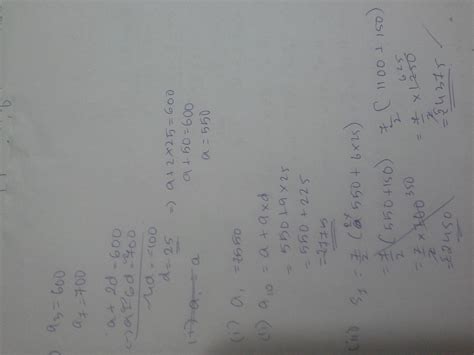 ) a3 = 600
a7 = 700
a + 2d = 600
a + 6d = 700
-4d = -100
d = 25 => a + 2×25 = 600
a + 50 = 600
a = 550
(i) a1 = 550
(ii) a10 = a + 9×d
= 550 + 9×25
= 550 + 225
= 775
(iii) S7 = 7/2 (2×550 + 6×25)
= 7/2 (550 + 150)
= 7/2 × 700 350
= 2450
7/2 (1100 + 150)
= 7/2 × 1250 625
= 4375